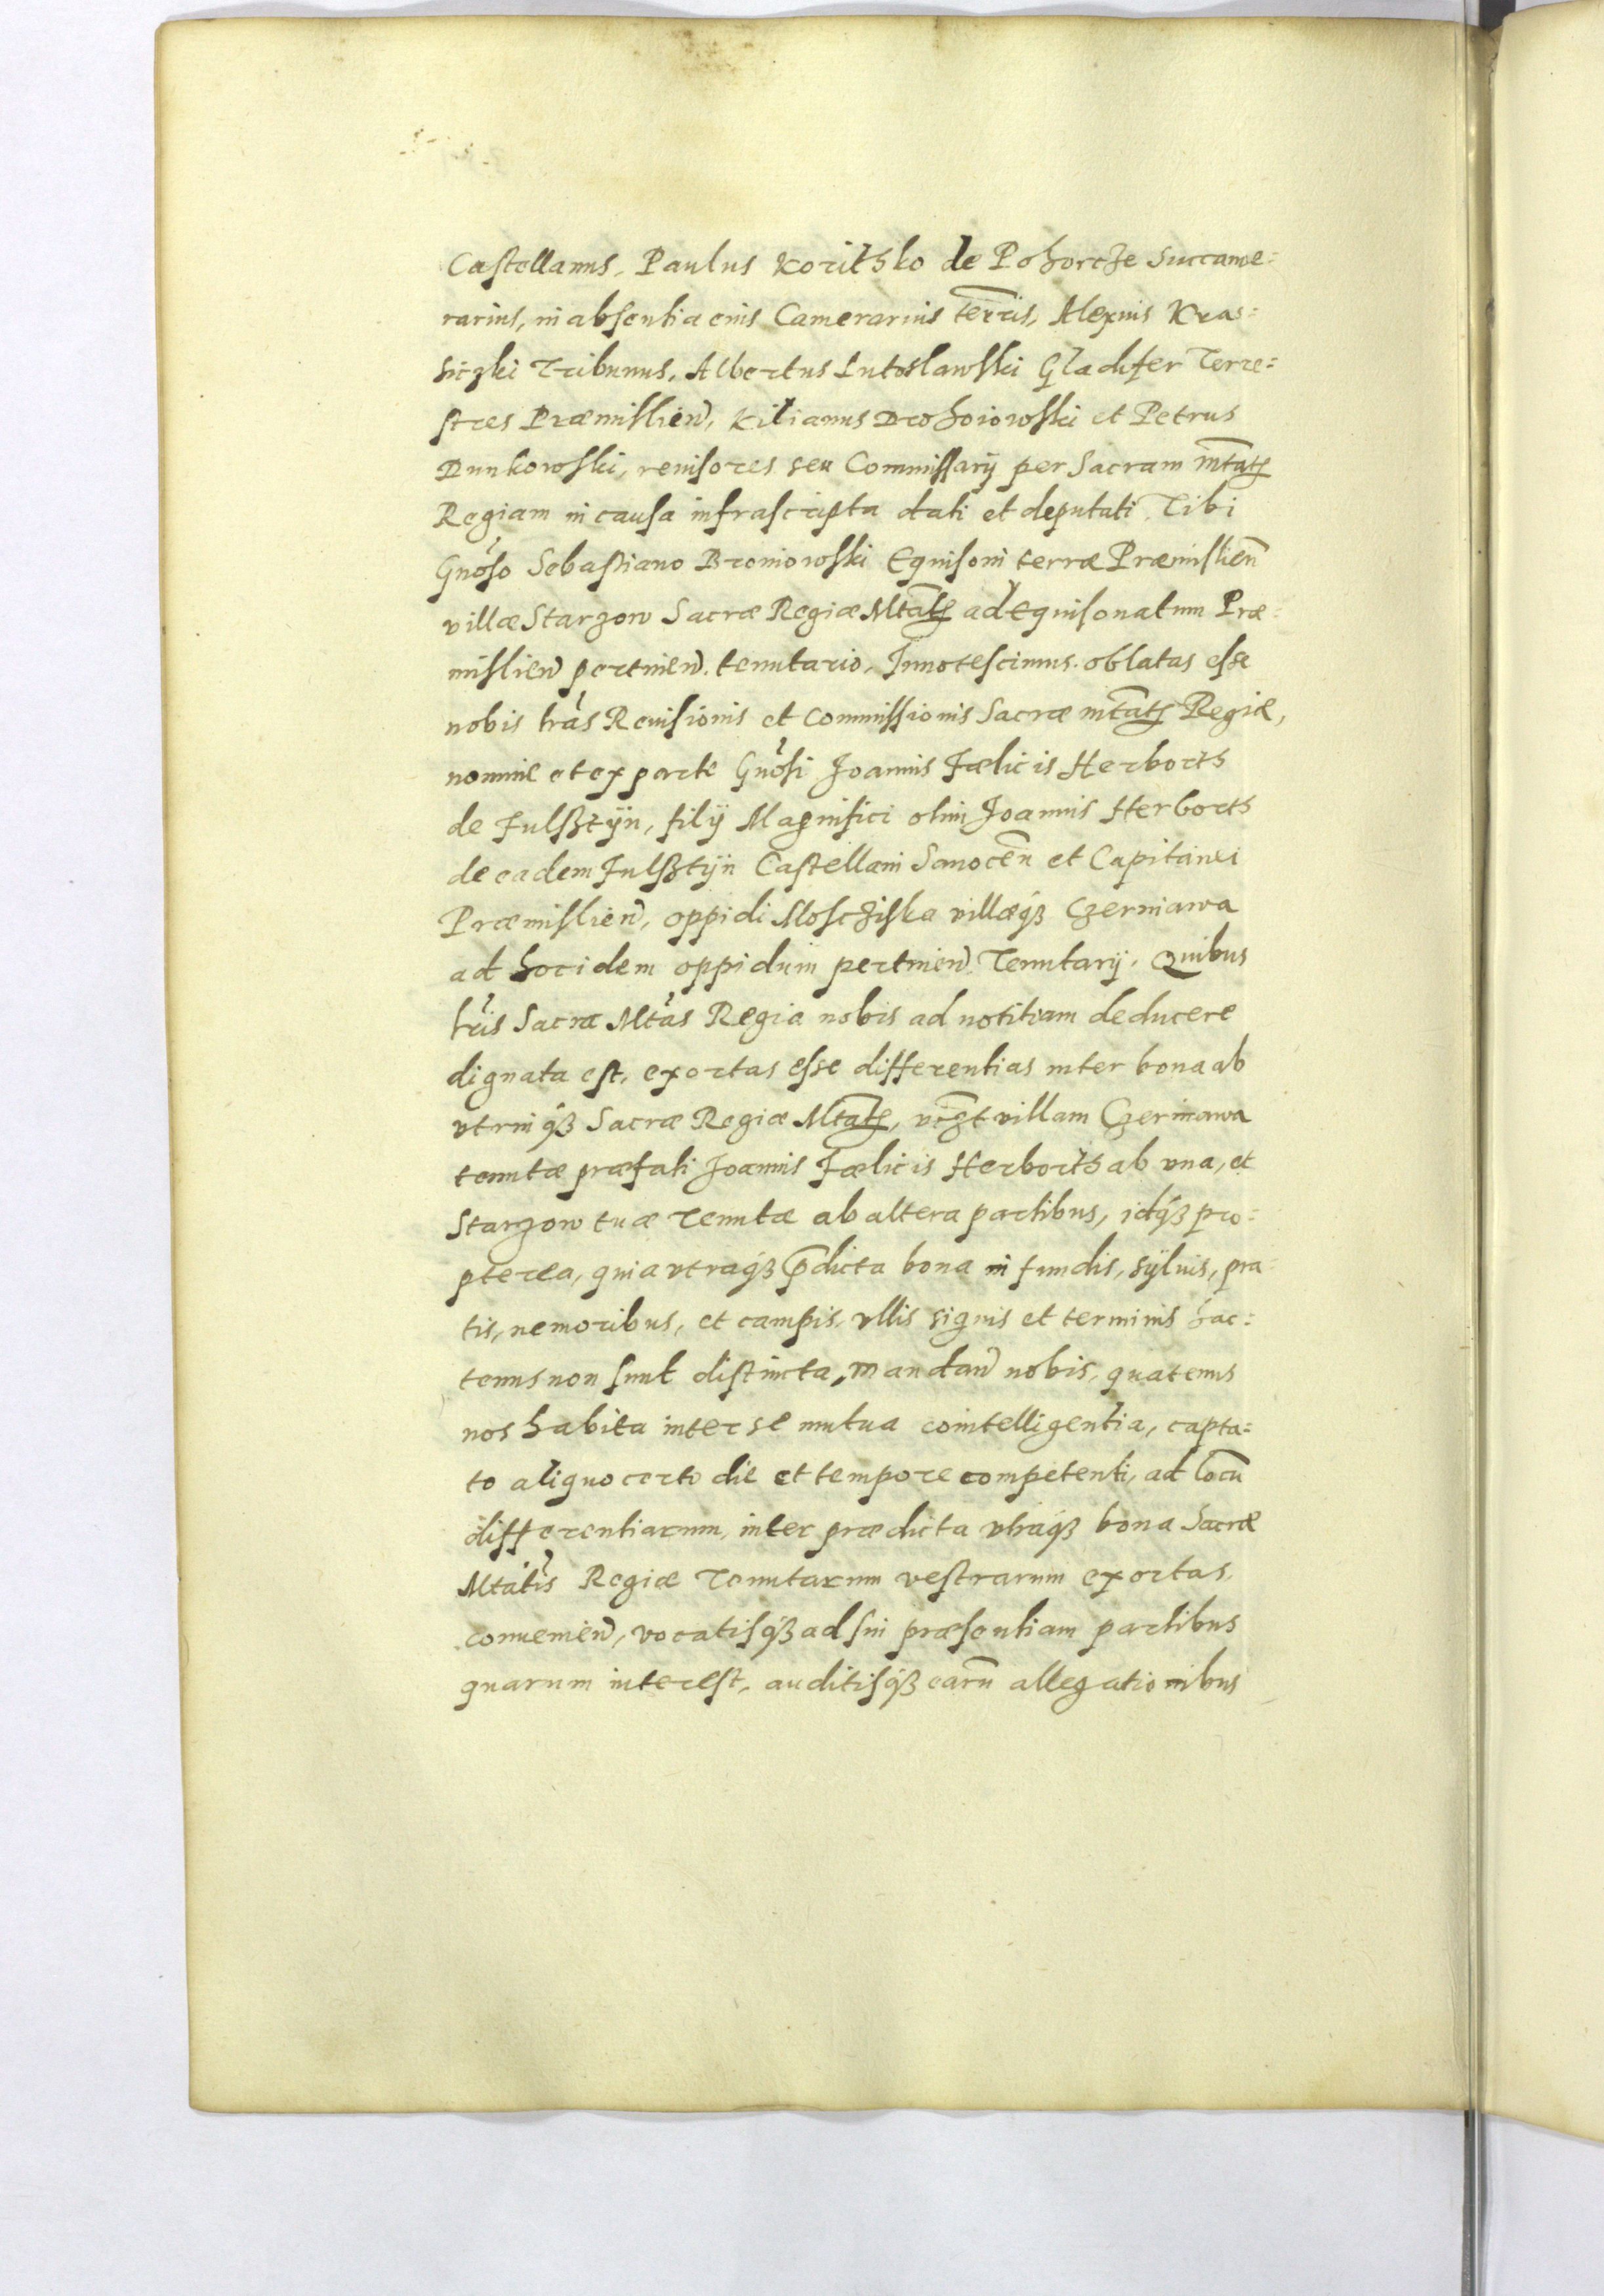 Castellanus, Paulus Korithko de Pohorcze Succame=
rarius, in absentia eius Camerarius terris, Alexius Kras=
siczki Tribunus, Albertus Lutoslawski Gladifer Terre=
stres Præmislien, Kilianus Drohoiowski et Petrus
Dunkowski, reuisores seu Commissarij per Sacram mtatem
Regiam in causa infrascripta dati et deputati, Tibi
Gnoso Sebastiano Broniowski Equisoni terræ Præmislien
villæ Starzow Sacræ Regiæ Mtatis ad Equisonatum Præ=
mislien pertinen. tenutario, Innotescimus. oblatas esse
nobis lras Reuisionis et Commissionis Sacræ mtatis Regiæ,
nomine et ex parte Gnosi Joannis Fælicis Herborth
de Fulsztijn, filij Magnifici olim Joannis Herborth
de eadem Fulsztijn Castellani Sanocen et Capitanei
Præmislien, oppidi Moscziska villæq́ꝫ Czerniawa
ad hoc idem oppidum pertinen Tenutarij. Quibus
lris Sacra Mtas Regia nobis ad notitiam deducere
dignata est, exortas esse differentias inter bona ab
vtrinq́ꝫ Sacræ Regiæ Mtatis, vczt villam Czerniawa
tenutæ præfati Joannis Fælicis Herborth ab vna, et
Starzow tuæ Tenutæ ab altera partibus, idq́ꝫ pro=
pterea, quia vtraq́ꝫ p̄dicta bona in fundis, sÿluis, pra=
tis, nemoribus, et campis, vllis signis et terminis hac=
tenus non sunt distincta, mandan nobis, quatenus
nos habita inter se mutua cointelligentia, capta=
to aliquo certo die et tempore competenti, ad locū
differentiarum, inter prædicta vtraq́ꝫ bona Sacræ
Mtatis Regiæ Tenutarum vestrarum exortas,
conuenien, vocatisq́ꝫ ad sui præsentiam partibus
quarum interest, auditisq́ꝫ earū allegationibus